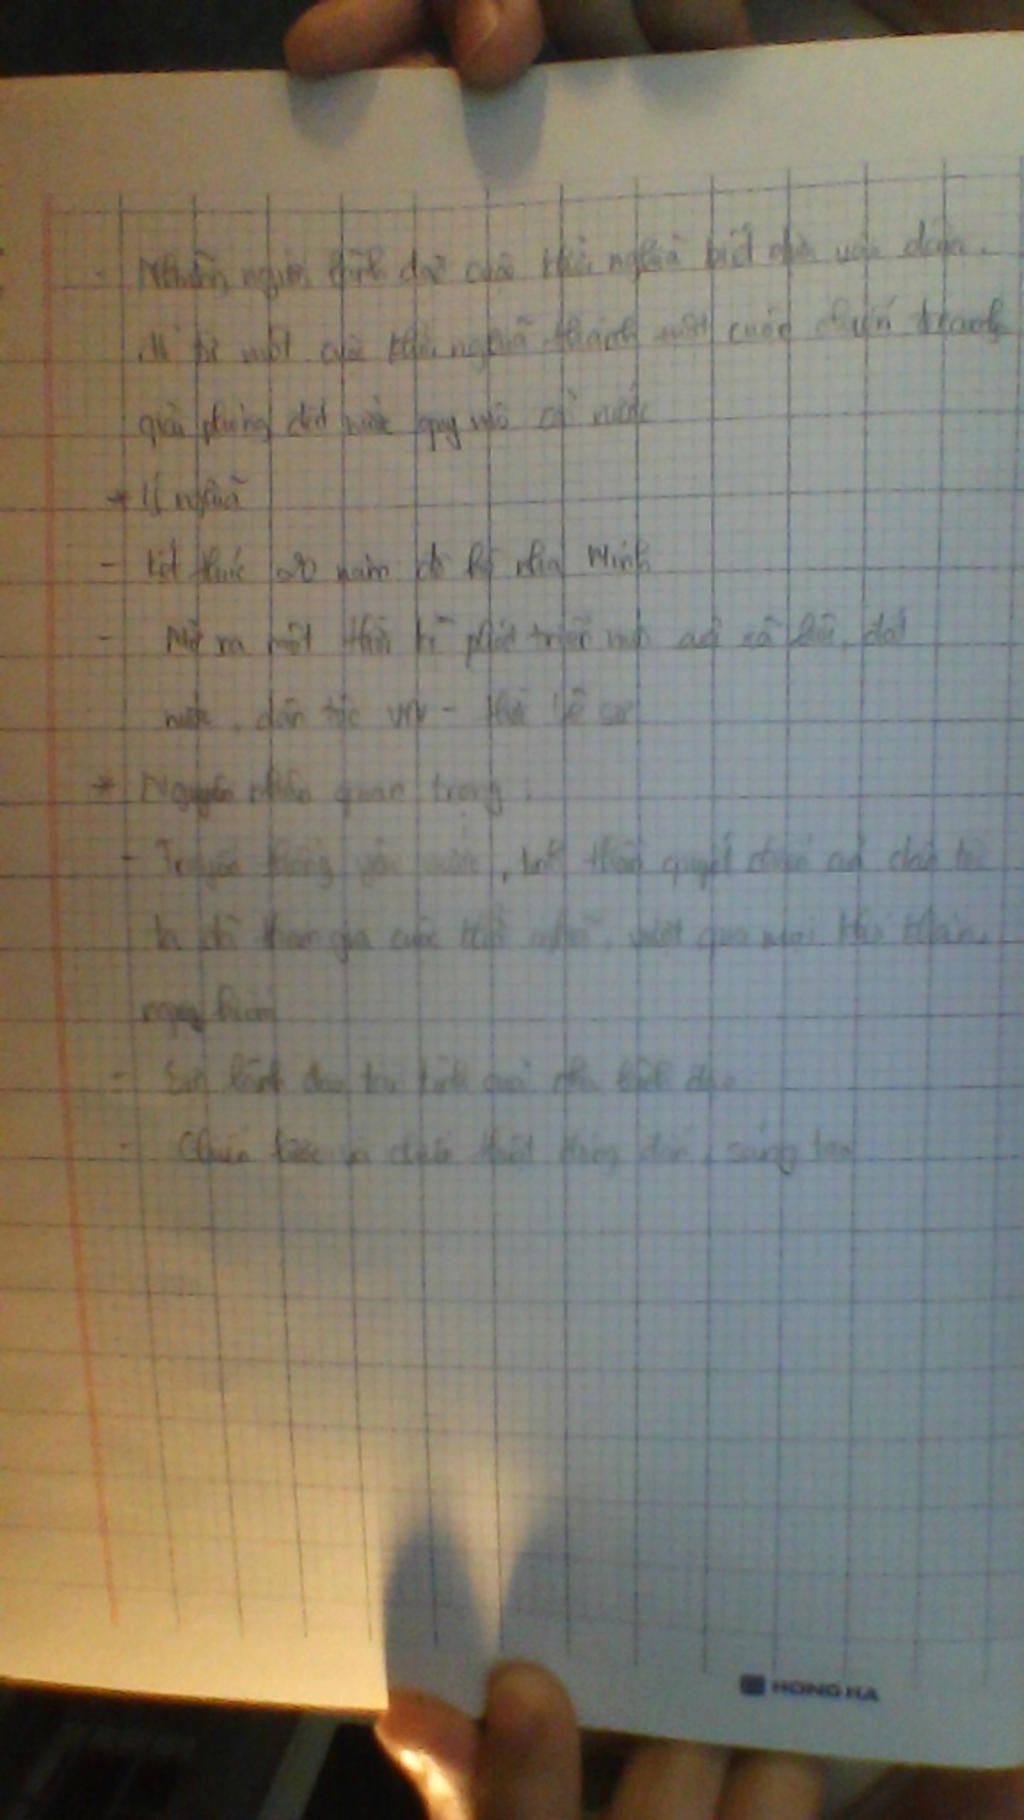 - Những người lãnh đạo cuộc khởi nghĩa biết dựa vào dân,
từ một cuộc khởi nghĩa thành một cuộc chiến tranh
giải phóng đất nước quy mô cả nước
* Ý nghĩa
- Kết thúc 20 năm đô hộ nhà Minh
- Mở ra một thời kì phát triển mới xã hội, đất
nước, dân tộc VN - thời Lê sơ
* Nguyên nhân quan trọng:
- Truyền thống yêu nước, tinh thần quyết chiến dân tộc
ta đã tham gia cuộc khởi nghĩa, vượt qua mọi khó khăn,
nguy hiểm
- Sự lãnh đạo tài tình lãnh đạo
- Chiến lược và chiến thuật đúng đắn, sáng tạo
HONG HA